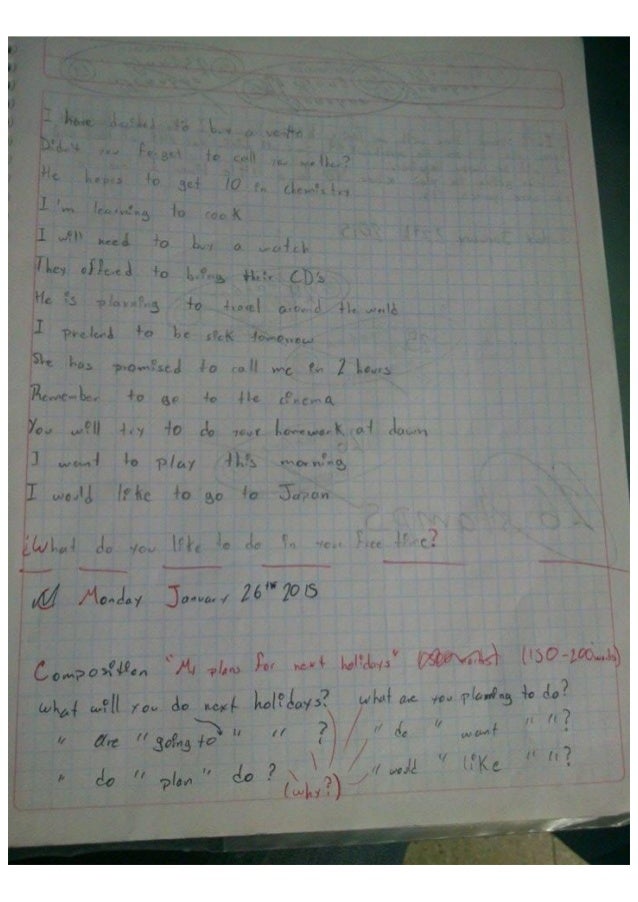 I have decided to buy a vento
Didn't you forget to call you mother?
He hopes to get 10 in chemistry
I'm learning to cook
I will need to buy a watch
They offered to bring their CD's
He is planning to travel around the world
I pretend to be sick tomorrow
She has promised to call me in 2 hours
Remember to go to the cinema
You will try to do your homework at dawn
I want to play this morning
I would like to go to Japan
¿What do you like to do in you free time?
Monday January 26th 2015
Composition "My plans for next holidays" (150-200 words)
what will you do next holidays? what are you planning to do?
" are " going to " " ? " do " want " "?
" do " plan " do? (why?) " would " like " "?